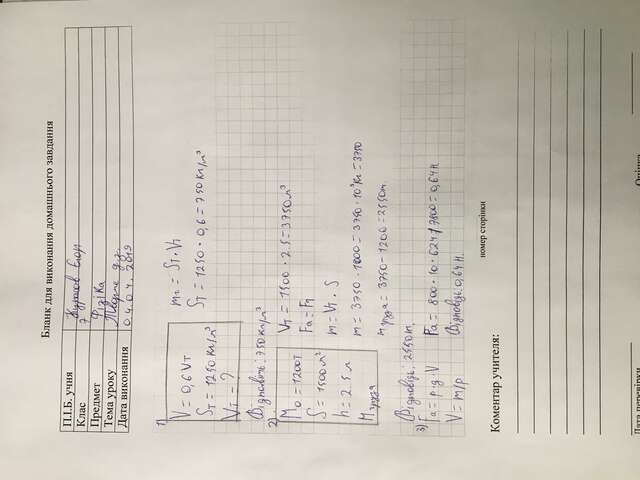 Бланк для виконання домашнього завдання
П.І.Б. учня
Клас 7
Предмет Фізіка
Тема уроку
Дата виконання 04.04.2019
1)
V = 0,6 Vт
Sт = 1250 кг/м³
Vт - ?
mт = Sт · Vт
Sт = 1250 · 0,6 = 750 кг/м³
Відповідь: 750 кг/м³
2)
Mо = 1200т
S = 1500 м²
h = 2.5 м
M
Vт = 1500 · 2.5 = 3750 м³
Fa = Fт
m = Vт · S
m = 3750 · 1000 = 3750 · 10³ кг = 3750
= 3750 - 1200 = 2550т.
Відповідь: 2550т.
3)
Fa = p · g · V
V = m/p
Fa = 800 · 10 · 624/7800 = 0,64 Н.
Відповідь: 0,64 Н.
номер сторінки
Коментар учителя:
Дата перевірки
Оцінка